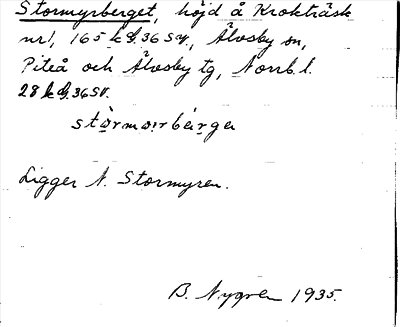 Stormyrberget, höjd å Kroktträsk
nr 1, 165 k G. 36 SV., Älvsby sn,
Piteå och Älvsby tg, Norrb. l.
28 k G. 36 SV.
stòrmạrbárga
Ligger N. Stormyren.
B. Nygren 1935.